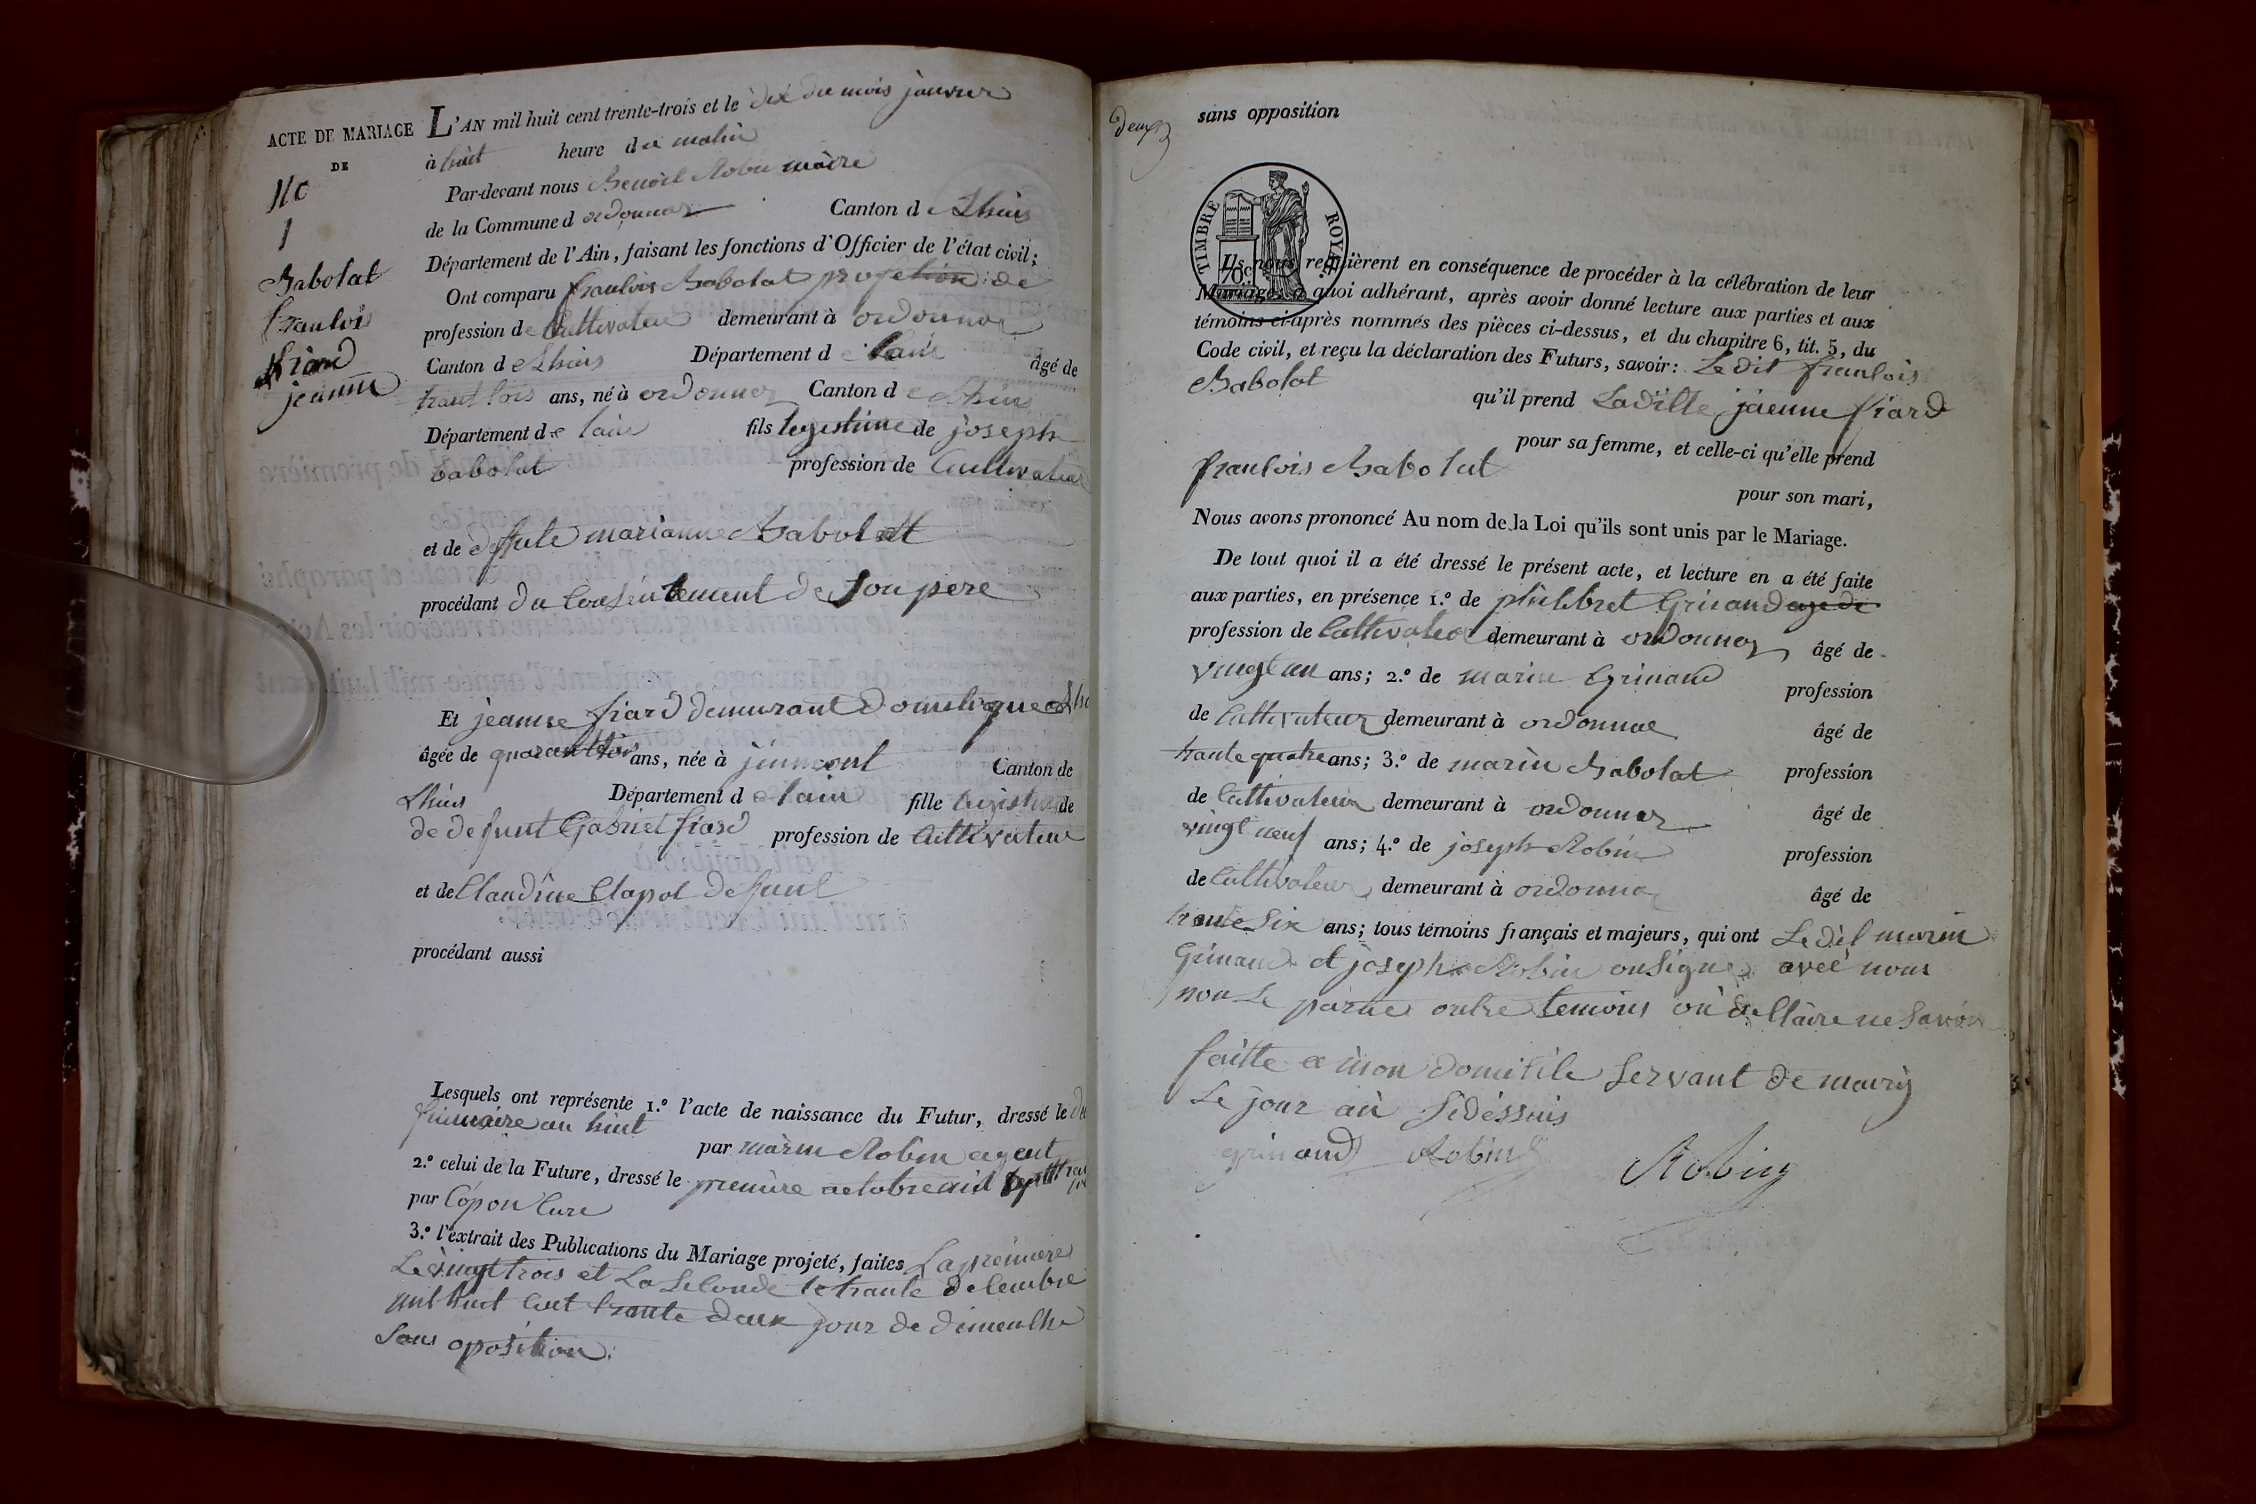 ACTE DE MARIAGE
DE
No
1
Babolat
francois
fiard
jeanne
L'AN mil huit cent trente-trois et le dix du mois janvier
à huit heure du matin
Par-devant nous Benoit Robin maire
de la Commune d ordonnaz Canton de Lhuis
Département de l'Ain, faisant les fonctions d'Officier de l'état civil;
Ont comparu francois Babolat profetion de
profession de Cultivateur demeurant à ordonnaz
Canton de Lhuis Département de lain âgé de
trant trois ans, né à ordonnaz Canton de Lhuis
Département de lain fils legestime de joseph
babolat profession de Cultivateur
et de deffute marianne Babolat
procédant du Consentement de Son pere
Et jeanne fiard demurant domestique a
âgée de quarant trois ans, née à Canton de
Lhuis Département de lain fille de
de defunt Gabriel fiard profession de Cultivateur
et de Claudine Clapot defunt
procédant aussi
Lesquels ont représenté 1.º l'acte de naissance du Futur, dressé le
frimaire an huit par marin Robin agent
2.º celui de la Future, dressé le premiere actobre mil sept
par Cópon Cure
3.º l'extrait des Publications du Mariage projeté, faites La premiere
Le vingt trois et La Seconde le trante decembre
mil huit cent trante deux jour de dimenche
Sans oposition.
deux
sans opposition
TIMBRE ROYAL
70c
Ils nous requièrent en conséquence de procéder à la célébration de leur
Mariage; à quoi adhérant, après avoir donné lecture aux parties et aux
témoins ci-après nommés des pièces ci-dessus, et du chapitre 6, tit. 5, du
Code civil, et reçu la déclaration des Futurs, savoir: Ledit francois
Babolat qu'il prend Laditte jaenne fiard
pour sa femme, et celle-ci qu'elle prend
francois Babolat pour son mari,
Nous avons prononcé Au nom de la Loi qu'ils sont unis par le Mariage.
De tout quoi il a été dressé le présent acte, et lecture en a été faite
aux parties, en présence 1.º de philibret Grinand age de
profession de Cultivateur demeurant à ordonnaz âgé de
vingt un ans; 2.º de marin Grinand profession
de Cultivateur demeurant à ordonnae âgé de
trante quatre ans; 3.º de marin Babolat profession
de Cultivateur demeurant à ordonnaz âgé de
vingt neuf ans; 4.º de joseph Robin profession
de Cultivateur demeurant à ordonnaz âgé de
trante Six ans; tous témoins français et majeurs, qui ont Ledit marin
Grinand et joseph Robin onsigne aveé nous
non Le partie outre temoins on declaire ne Savoir
faitte a mon domicile Servant de mairy
Le jour an Sedessuis
grinand Robin Robin